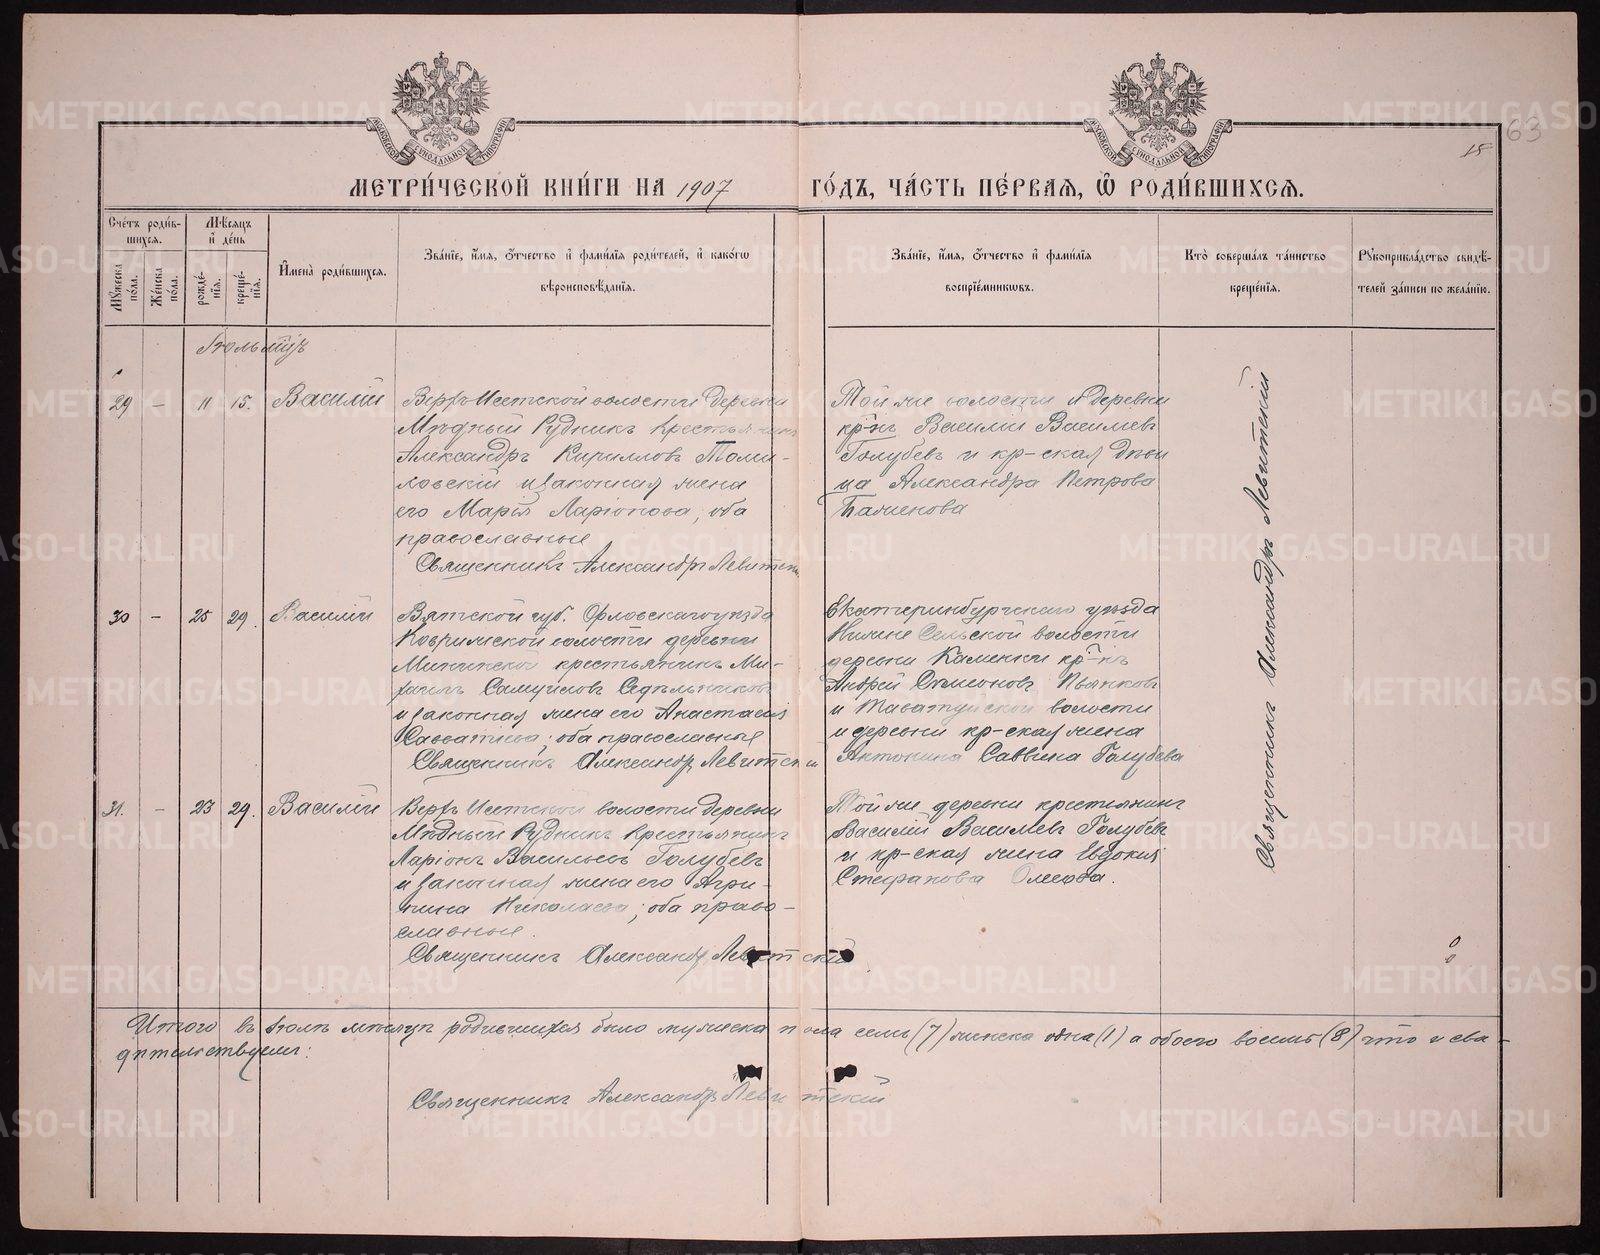 МОСКОВСКОЙ СѴНОДАЛЬНОЙ ТИПОГРАФІИ
МОСКОВСКОЙ СѴНОДАЛЬНОЙ ТИПОГРАФІИ
63
15
МЕТРИ́ЧЕСКОЙ КНИ́ГИ НА 1907 ГО́ДЪ, ЧА́СТЬ ПЕ́РВАЯ, Ѡ РОДИ́ВШИХСЯ.
Сче́тъ роди́в-
шихся.
Мѣсяцъ
и҆ де́нь
Мꙋ́жеска
по́ла.
Же́нска
по́ла.
рожде́-
нїя.
креще́-
нїя.
И҆мена̀ роди́вшихся.
Зва́нїе, и҆́мя, ѻ҆́тчество и҆ фами́лїя роди́телей, и҆ како́гѡ
вѣроисповѣ́данїя.
Зва́нїе, и҆́мя, ѻ҆́тчество и҆ фами́лїя
воспрїе́мникѡвъ.
Кто̀ соверша́лъ та́инство
креще́нїя.
Рꙋкоприкла́дство свидѣ́-
телей за́писи по жела́нїю.
Іюль мѣцъ
29 – 11 15. Василій
Верхъ Исетской волости деревни
Мѣдный Рудникъ крестьянинъ
Александръ Кирилловъ Томи-
ловскій и законная жена
его Марія Ларіонова, оба
православные
Священникъ Александръ Левитскій
Той же волости и деревни
кр-нъ Василій Василіевъ
Голубевъ и кр-ская дѣви
ца Александра Петрова
30 – 25 29. Василій
Вятской губ. Орловскаго уѣзда
волости деревни
крестьянинъ Ми-
хаилъ Самуиловъ Седѣльниковъ
и законная жена его Анастасія
Савватіева; оба православные
Священникъ Александръ Левитскій
Екатеринбургскаго уѣзда
Нижне Сельской волости
деревни Каменки кр-нъ
Андрей Симеоновъ Пьянковъ
и Таватуйской волости
и деревни кр-ская жена
Антонина Саввина Голубева
31. – 23 29. Василій
Верхъ Исетской волости деревни
Мѣдный Рудникъ крестьянинъ
Ларіонъ Васильевъ Голубевъ
и законная жена его Агри-
пина Николаева; оба право-
славные.
Священникъ Александръ Левитскій
Той же деревни крестьянинъ
Василій Василіевъ Голубевъ
и кр-ская жена Евдокія
Стефанова
Священникъ Александръ Левитскій
Итого въ іюлѣ мѣсяцѣ родившихся было мужеска пола семь (7) женска одна (1) а обоего восемь (8) что и сви-
дѣтельствуемъ:
Священникъ Александръ Левитскій
METRIKI.GASO-URAL.RU